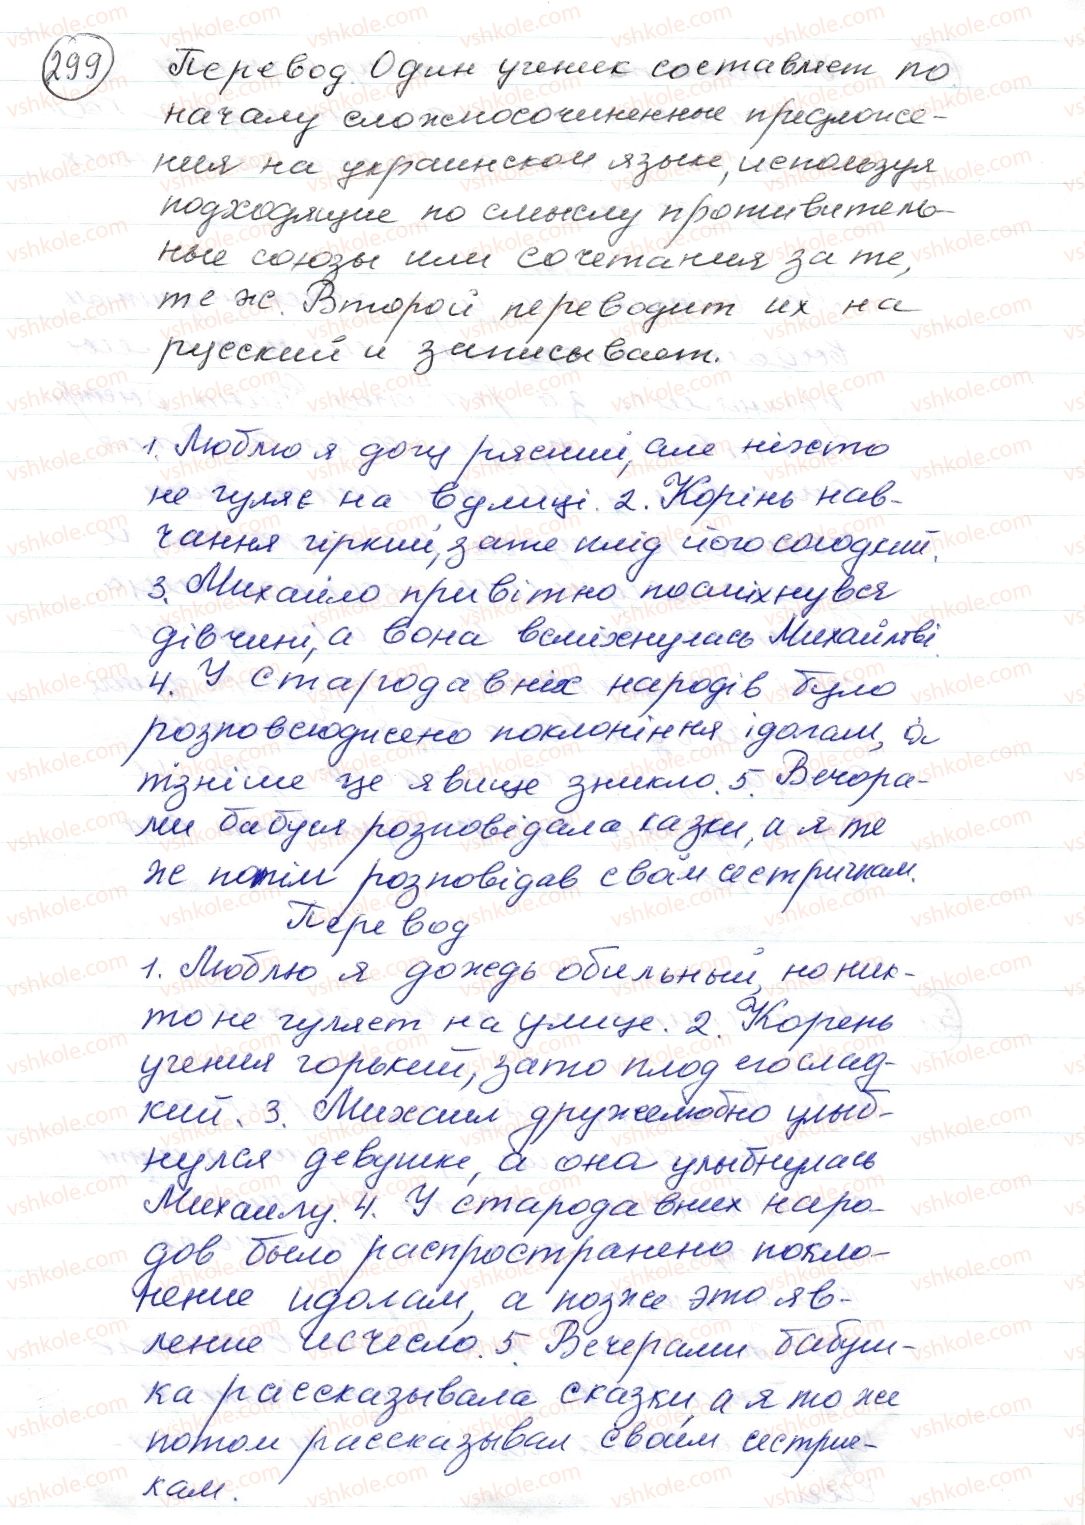 299
Перевод. Один ученик составляет по
началу сложносочиненные предложе-
ния на украинском языке, используя
подходящие по смыслу противитель-
ные союзы или сочетания за те,
те ж. Второй переводит их на
русский и записывает.
1. Люблю я дощ рясний, але ніхто
не гуляє на вулиці. 2. Корінь нав-
чання гіркий, зате плід його солодкий.
3. Михайло привітно посміхнувся
дівчині, а вона всміхнулась Михайлові.
4. У стародавніх народів було
розповсюджено поклоніння ідолам, а
пізніше це явище зникло. 5. Вечора-
ми бабуся розповідала казки, а я те
ж потім розповідав своїм сестричкам.
Перевод
1. Люблю я дождь обильный, но ник-
то не гуляет на улице. 2. Корень
учения горький, зато плод его слад-
кий. 3. Михаил дружелюбно улыб-
нулся девушке, а она улыбнулась
Михаилу. 4. У стародавних наро-
дов было распространено покло-
нение идолам, а позже это яв-
ление исчесло. 5. Вечерами бабуш-
ка рассказывала сказки, а я то же
потом рассказывал своим сестрич-
кам.
vshkole.com